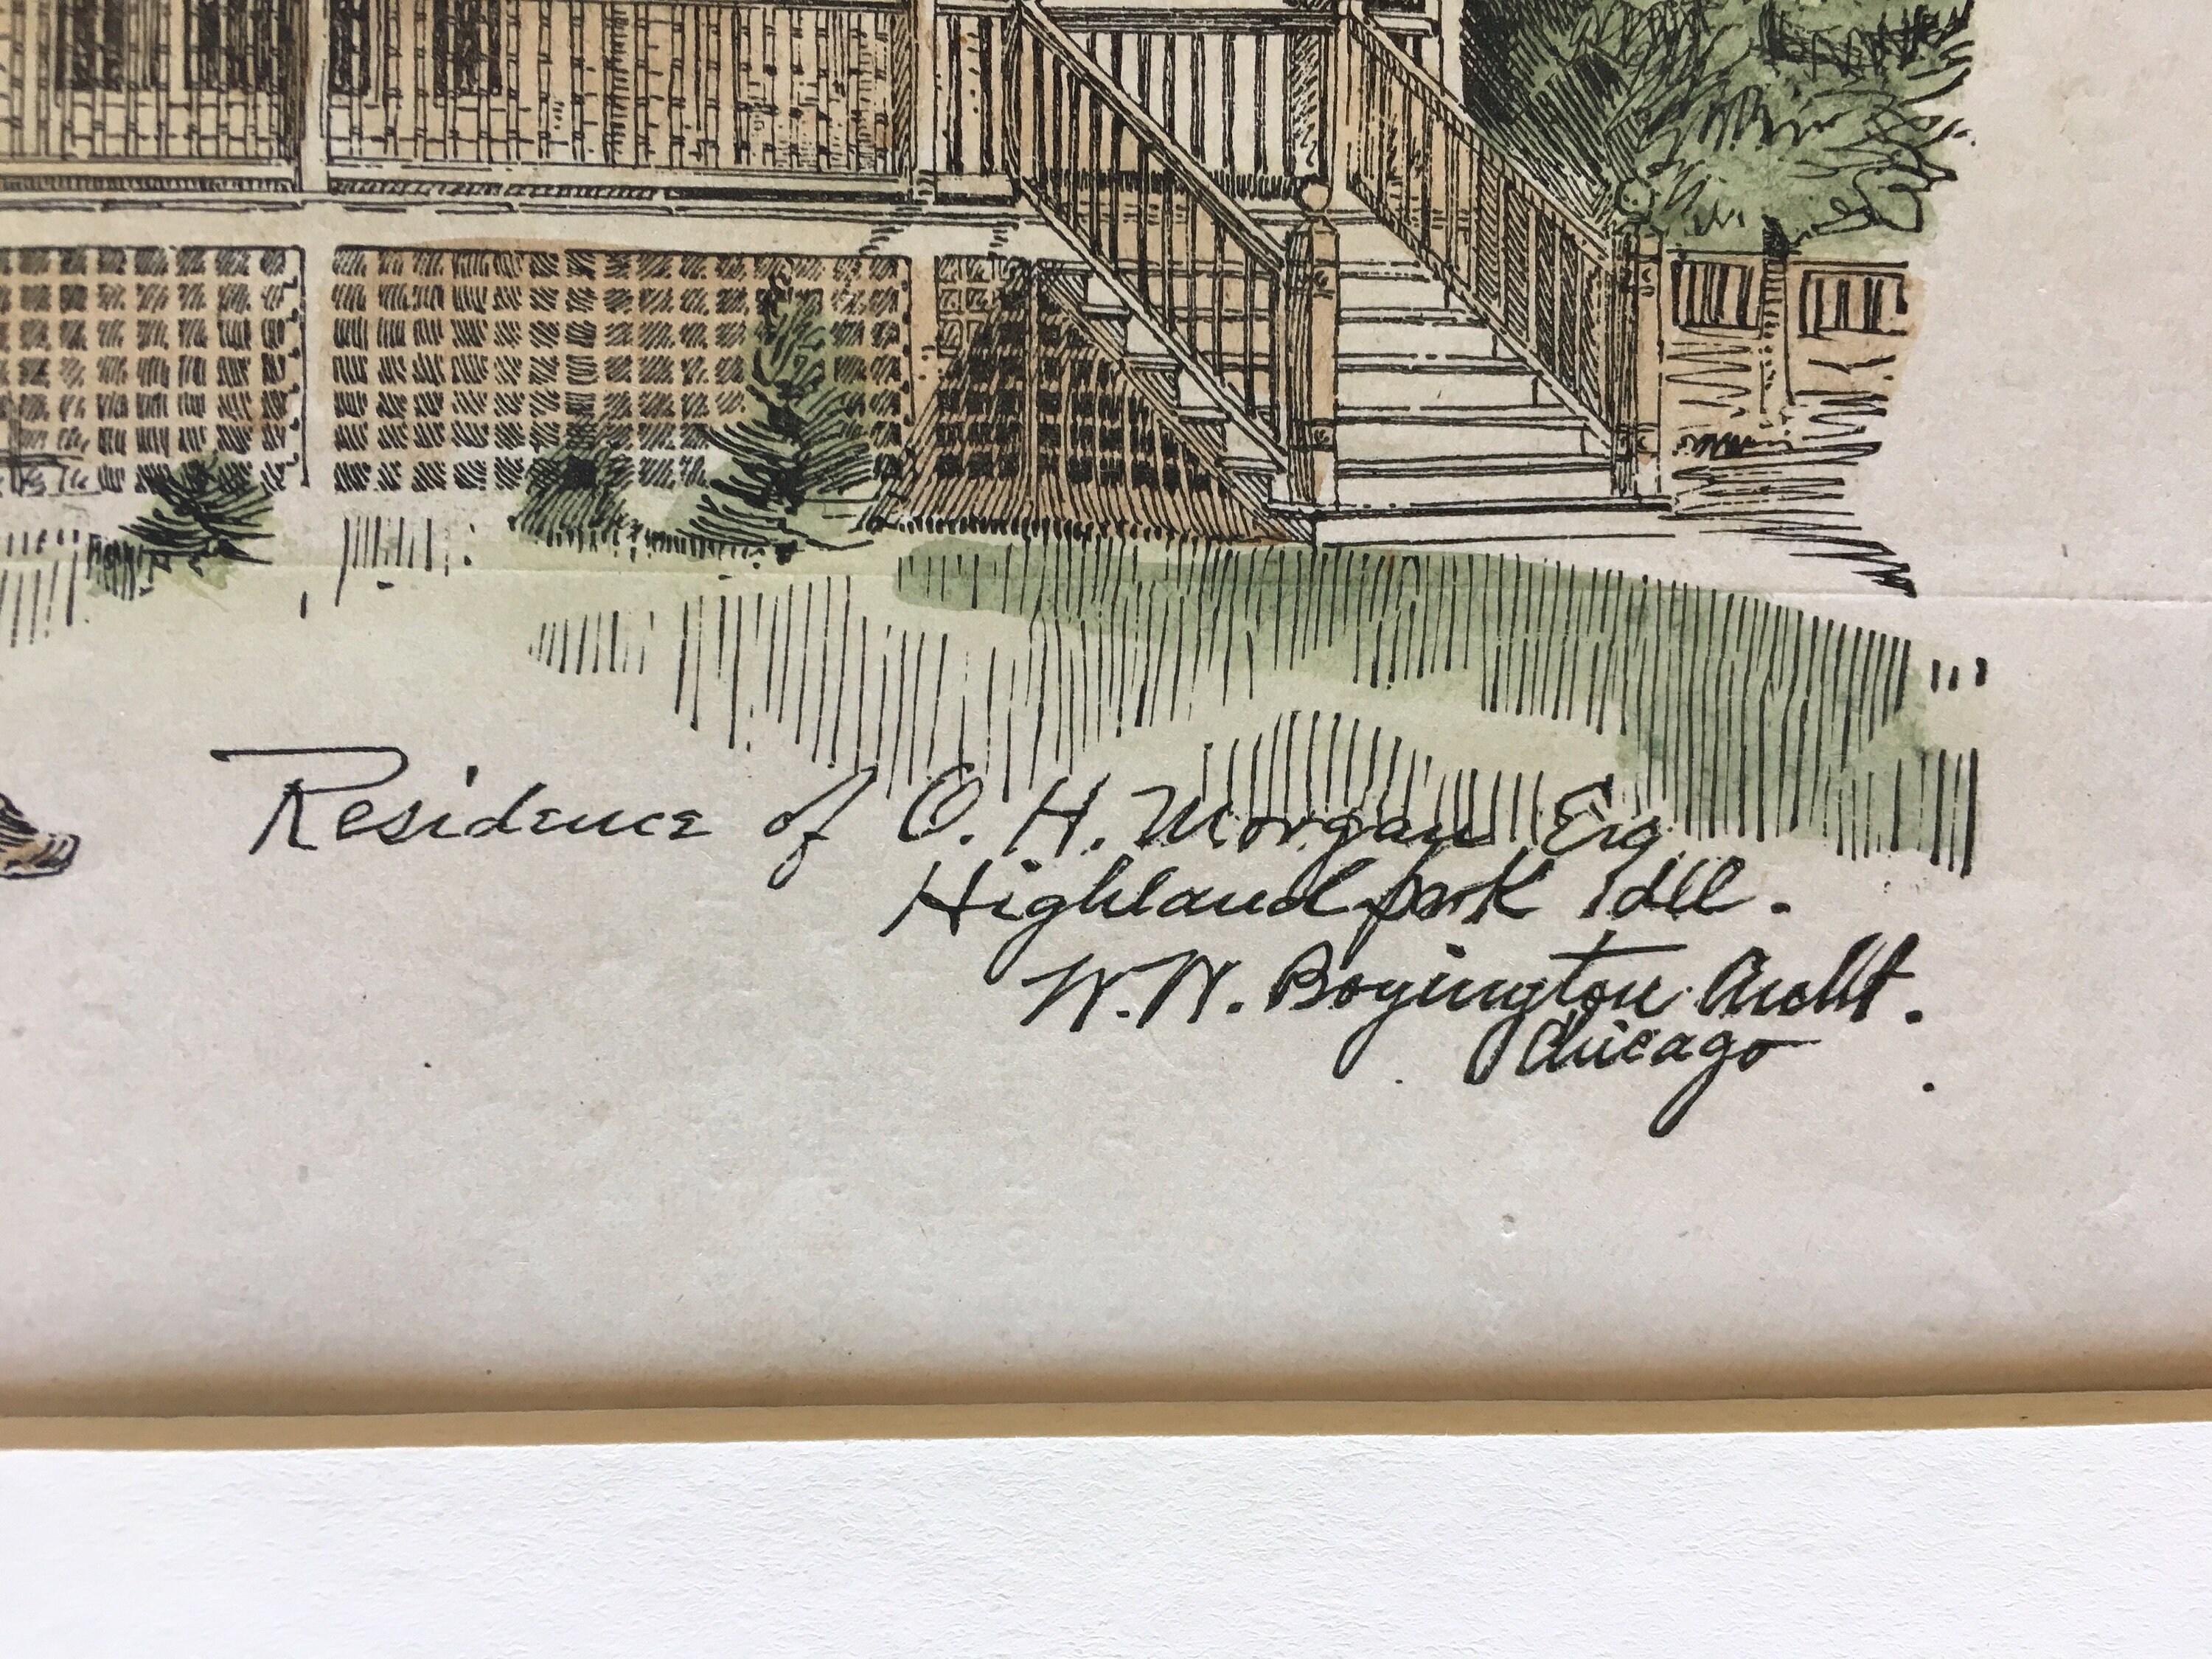 Residence of O. H. Morgan Esq
Highland park Ill.
W. W. Boyington Archt.
Chicago